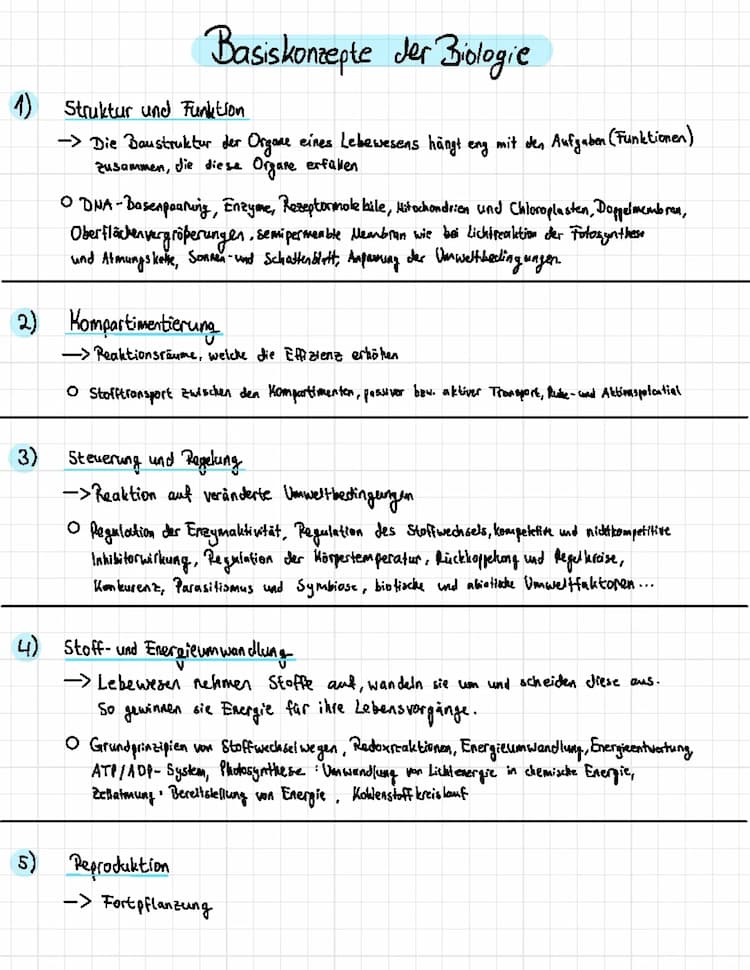 Basiskonzepte der Biologie
1) Struktur und Funktion
-> Die Baustruktur der Organe eines Lebewesens hängt eng mit den Aufgaben (Funktionen)
zusammen, die diese Organe erfüllen
O DNA-Basenpaarung, Enzyme, Rezeptormoleküle, Mitochondrien und Chloroplasten, Doppelmembran,
Oberflächenvergrößerungen, semipermeable Membran wie bei Lichtreaktion der Fotosynthese
und Atmungskette, Sonnen- und Schattenblatt; Anpassung der Umweltbedingungen
2) Kompartimentierung
-> Reaktionsräume, welche die Effizienz erhöhen
O Stofftransport zwischen den Kompartimenten, passiver bzw. aktiver Transport, Ruhe- und Aktionspotential
3) Steuerung und Regelung
-> Reaktion auf veränderte Umweltbedingungen
O Regulation der Enzymaktivität, Regulation des Stoffwechsels, kompetitive und nichtkompetitive
Inhibitorwirkung, Regulation der Körpertemperatur, Rückkoppelung und Regelkreise,
Konkurenz, Parasitismus und Symbiose, biotische und abiotische Umweltfaktoren...
4) Stoff- und Energieumwandlung
-> Lebewesen nehmen Stoffe auf, wandeln sie um und scheiden diese aus.
So gewinnen sie Energie für ihre Lebensvorgänge.
O Grundprinzipien von Stoffwechselwegen, Redoxreaktionen, Energieumwandlung, Energieentwertung
ATP/ADP-System, Photosynthese: Umwandlung von Lichtenergie in chemische Energie,
Zellatmung: Bereitstellung von Energie, Kohlenstoffkreislauf
5) Reproduktion
-> Fortpflanzung